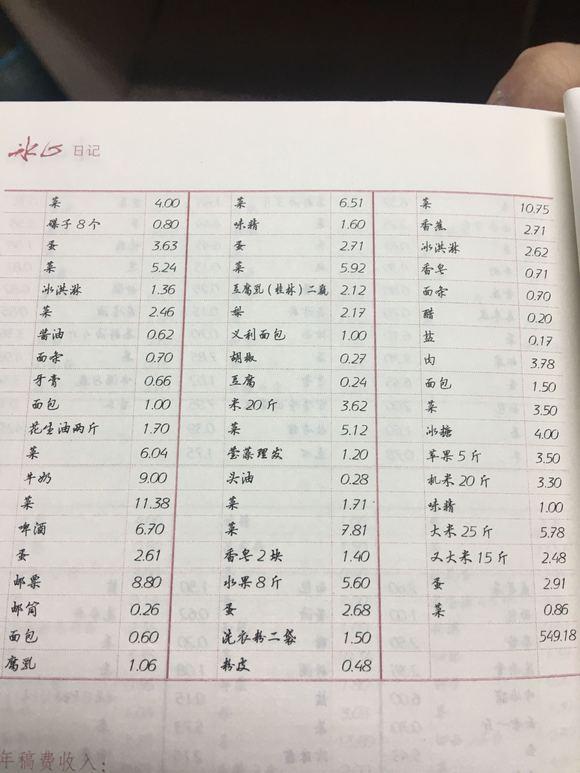 冰心 日记
菜 4.00
碟子8个 0.80
蛋 3.63
菜 5.24
冰淇淋 1.36
菜 2.46
酱油 0.62
面 0.70
牙膏 0.66
面包 1.00
花生油两斤 1.70
菜 6.04
牛奶 9.00
菜 11.38
啤酒 6.70
蛋 2.61
邮票 8.80
邮简 0.26
面包 0.60
腐乳 1.06
菜 6.51
味精 1.60
蛋 2.71
菜 5.92
豆腐乳（桂林）二瓶 2.12
梨 2.17
义利面包 1.00
胡椒 0.27
豆腐 0.24
米20斤 3.62
菜 5.12
理发 1.20
头油 0.28
菜 1.71
菜 7.81
香皂2块 1.40
水果8斤 5.60
蛋 2.68
洗衣粉二袋 1.50
粉皮 0.48
菜 10.75
香蕉 2.71
冰淇淋 2.62
香皂 0.71
面 0.70
醋 0.20
盐 0.17
肉 3.78
面包 1.50
菜 3.50
冰糖 4.00
苹果5斤 3.50
机米20斤 3.30
味精 1.00
大米25斤 5.78
又大米15斤 2.48
蛋 2.91
菜 0.86
549.18
年稿费收入：